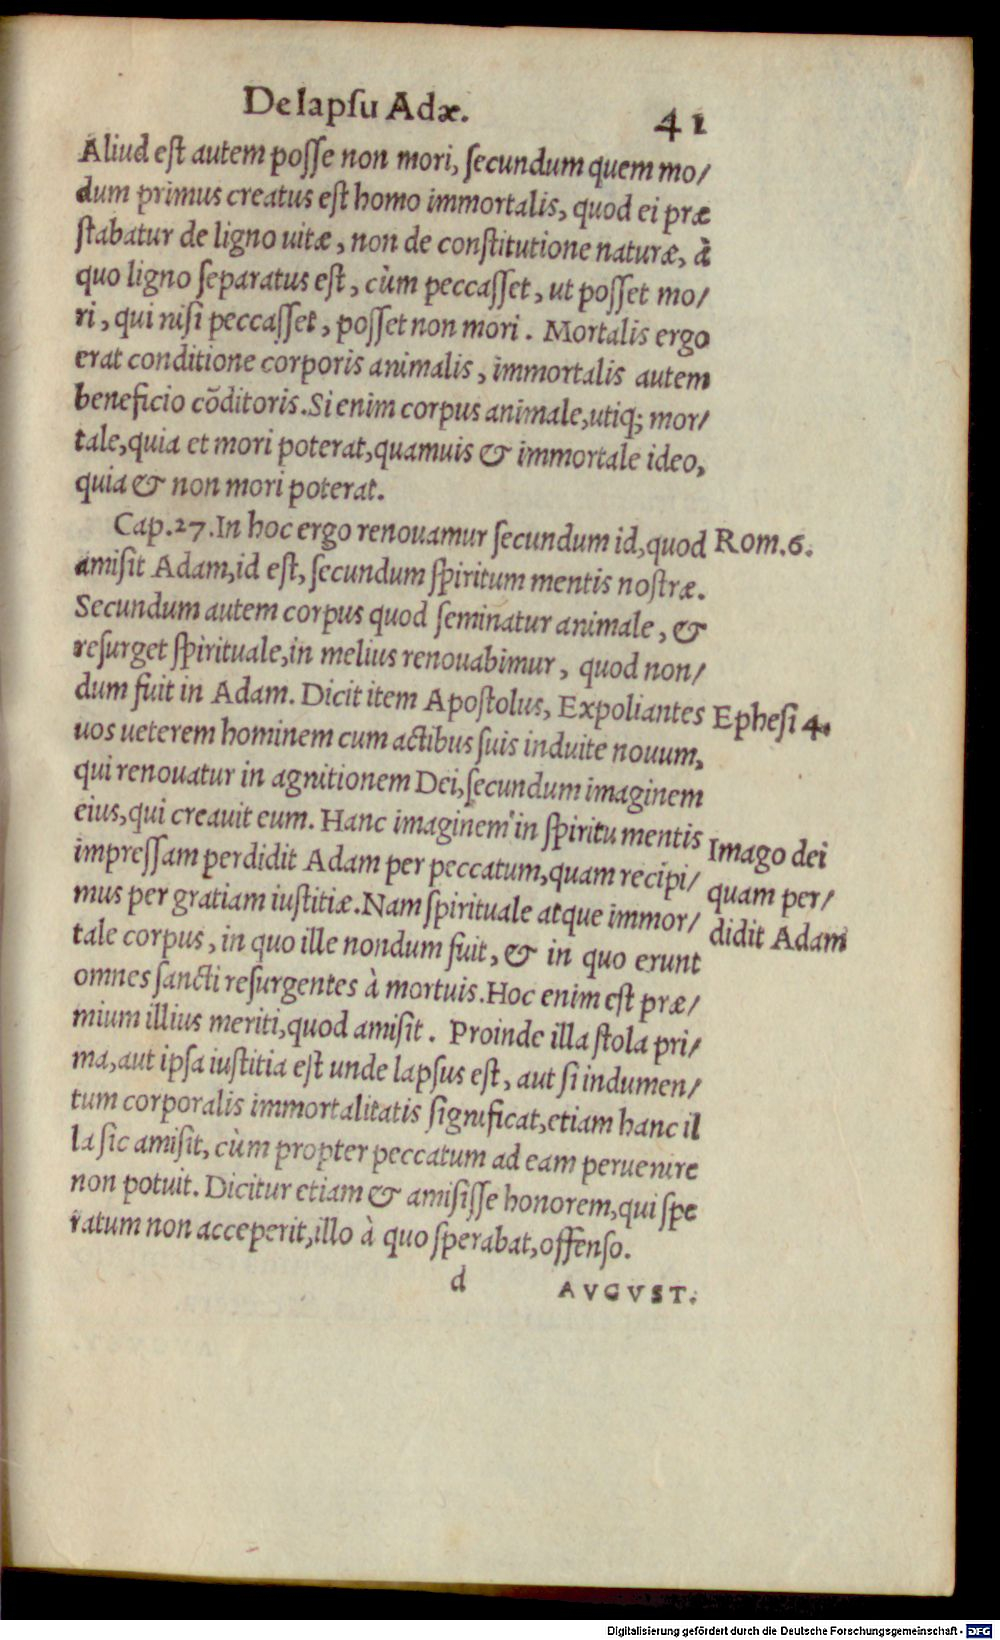 De lapsu Adæ. 41
Aliud est autem posse non mori, secundum quem mo/
dum primus creatus est homo immortalis, quod ei præ
stabatur de ligno uitæ, non de constitutione naturæ, à
quo ligno separatus est, cùm peccasset, ut posset mo/
ri, qui nisi peccasset, posset non mori. Mortalis ergo
erat conditione corporis animalis, immortalis autem
beneficio cōditoris. Si enim corpus animale, utiq; mor/
tale, quia et mori poterat, quamuis & immortale ideo,
quia & non mori poterat.
Cap. 27. In hoc ergo renouamur secundum id, quod
Rom. 6.
amisit Adam, id est, secundum spiritum mentis nostræ.
Secundum autem corpus quod seminatur animale, &
resurget spirituale, in melius renouabimur, quod non/
dum fuit in Adam. Dicit item Apostolus, Expoliantes
Ephesi 4.
uos ueterem hominem cum actibus suis induite nouum,
qui renouatur in agnitionem Dei, secundum imaginem
eius, qui creauit eum. Hanc imaginem in spiritu mentis
impressam perdidit Adam per peccatum, quam recipi/
mus per gratiam iustitiæ. Nam spirituale atque immor/
tale corpus, in quo ille nondum fuit, & in quo erunt
Imago dei
quam per/
didit Adam
omnes sancti resurgentes à mortuis. Hoc enim est præ/
mium illius meriti, quod amisit. Proinde illa stola pri/
ma, aut ipsa iustitia est unde lapsus est, aut si indumen/
tum corporalis immortalitatis significat, etiam hanc il
la sic amisit, cùm propter peccatum ad eam peruenire
non potuit. Dicitur etiam & amisisse honorem, qui spe
ratum non acceperit, illo à quo sperabat, offenso.
d AVGVST.
Digitalisierung gefördert durch die Deutsche Forschungsgemeinschaft - DFG